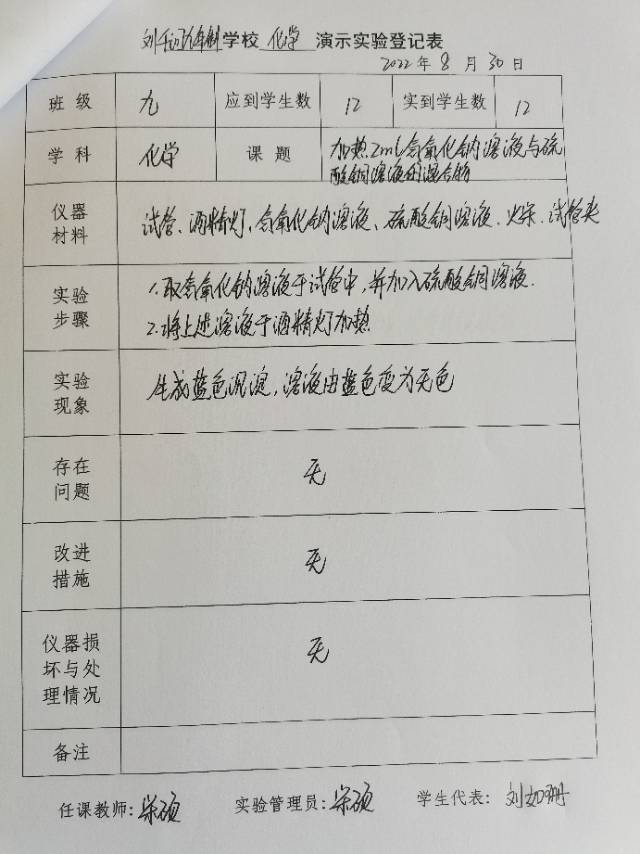 学校 化学 演示实验登记表
2022 年 8 月 30 日
班级 九 应到学生数 12 实到学生数 12
学科 化学 课题 加热2ml氢氧化钠溶液与硫
酸铜溶液的混合物
仪器
材料
试管、酒精灯、氢氧化钠溶液、硫酸铜溶液、火柴、试管夹
实验
步骤
1.取氢氧化钠溶液于试管中,并加入硫酸铜溶液.
2.将上述溶液于酒精灯加热.
实验
现象
生成蓝色沉淀,溶液由蓝色变为无色
存在
问题
无
改进
措施
无
仪器损
坏与处
理情况
无
备注
任课教师: 实验管理员: 学生代表: 刘如珊